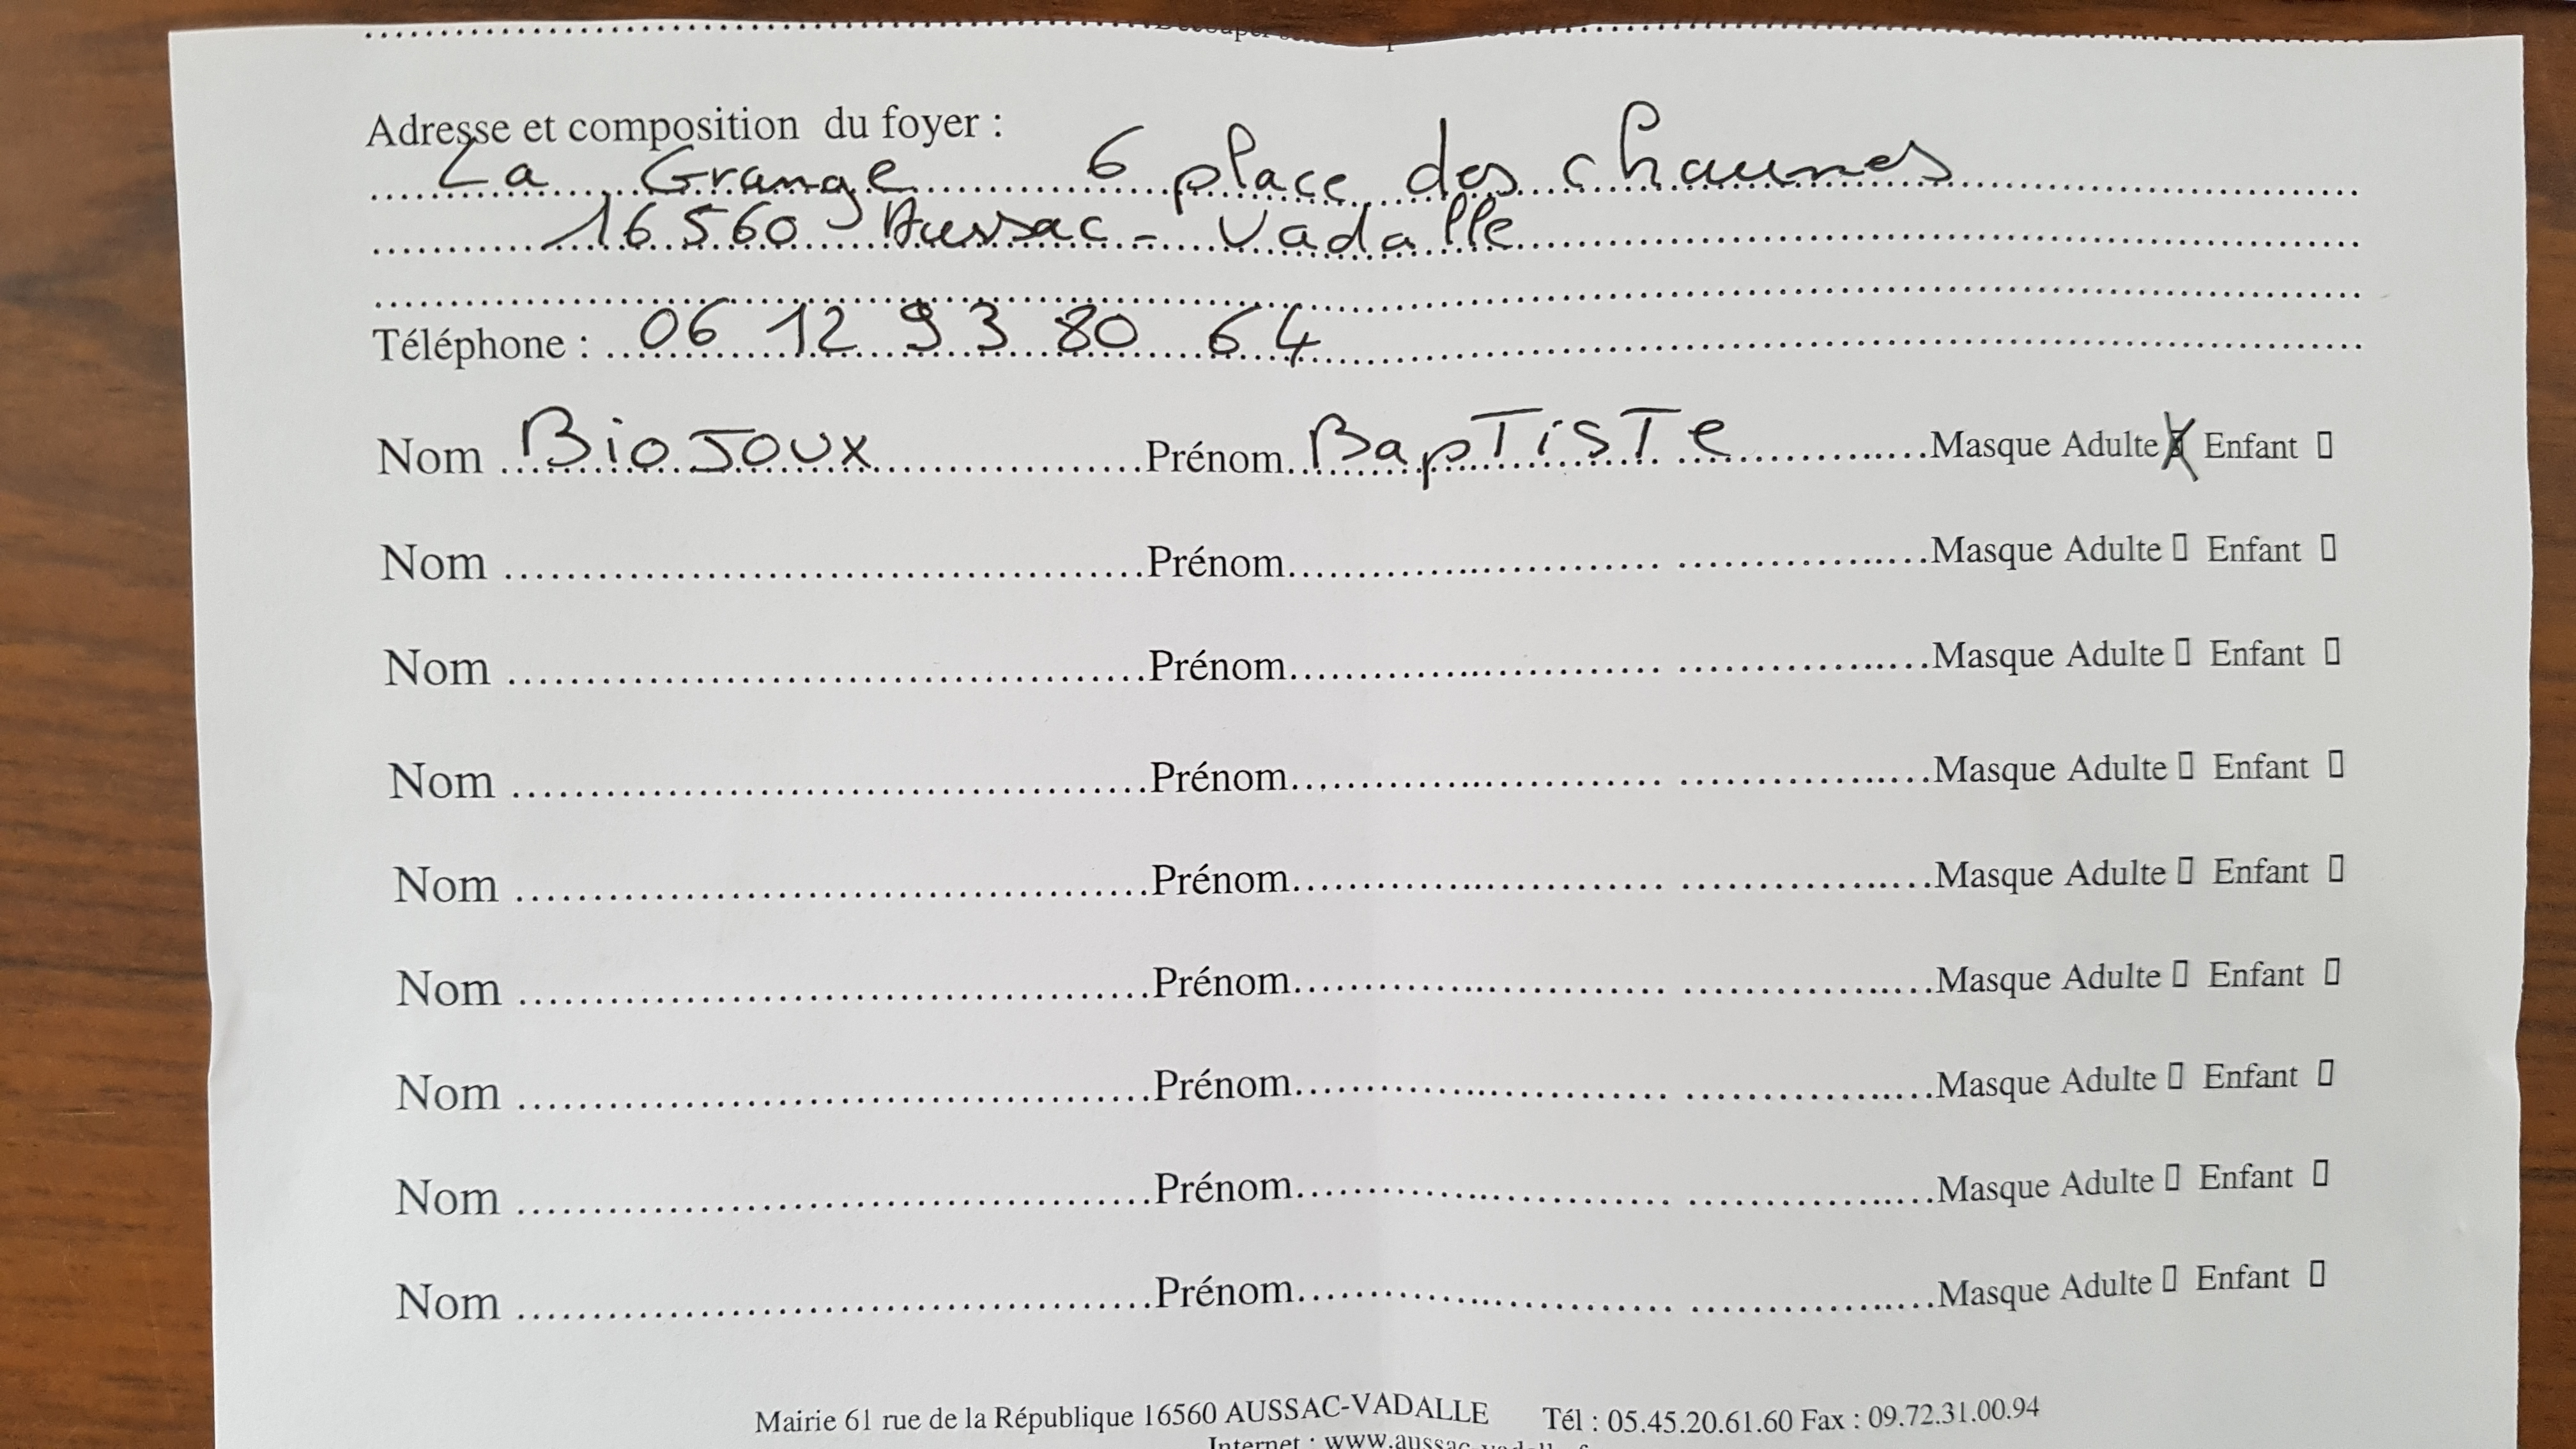 Adresse et composition du foyer :
La Grange 6 place des chaumes
16560 Aussac - Vadalle
Téléphone : 06 12 93 80 64
Nom BioJoux Prénom BapTisTe Masque Adulte X Enfant ▯
Nom Prénom Masque Adulte ▯ Enfant ▯
Nom Prénom Masque Adulte ▯ Enfant ▯
Nom Prénom Masque Adulte ▯ Enfant ▯
Nom Prénom Masque Adulte ▯ Enfant ▯
Nom Prénom Masque Adulte ▯ Enfant ▯
Nom Prénom Masque Adulte ▯ Enfant ▯
Nom Prénom Masque Adulte ▯ Enfant ▯
Nom Prénom Masque Adulte ▯ Enfant ▯
Mairie 61 rue de la République 16560 AUSSAC-VADALLE Tél : 05.45.20.61.60 Fax : 09.72.31.00.94
Internet :